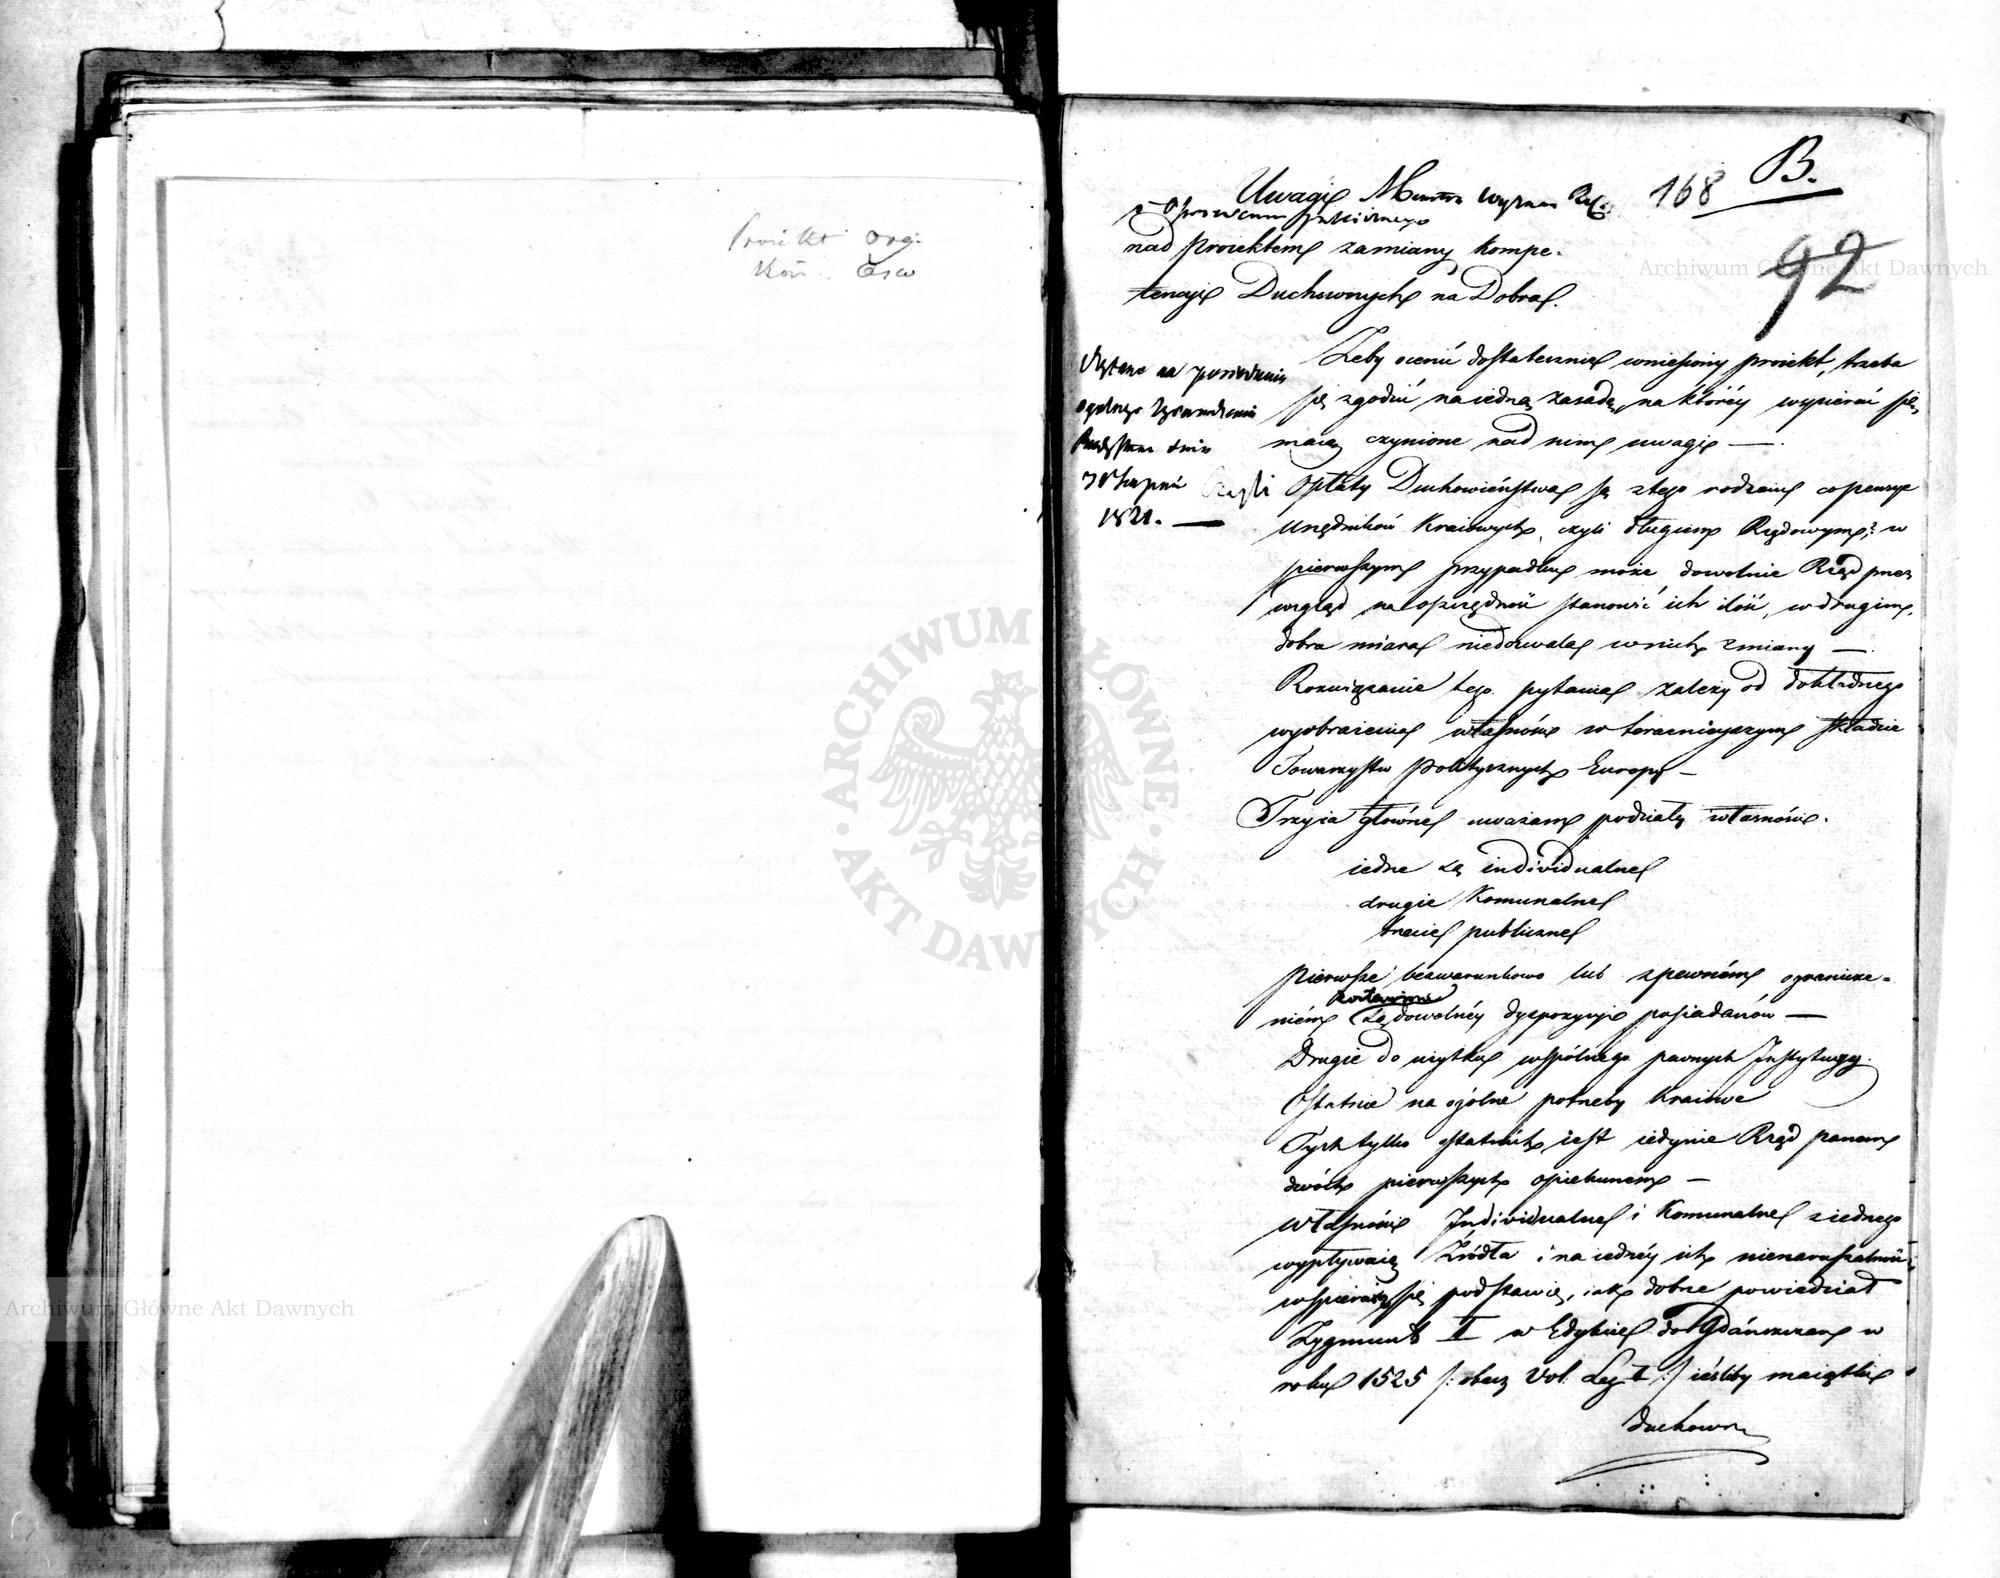 Proiekt Org.
B.
168
92
Uwagi Ministra Wyznań Rel:
i Oświecenia Publicznego
nad Proiektem zamiany kompe-
tencyi Duchownych na Dobra.
Czytane na posiedzeniu
ogólnego Zgromadzenia
Rady Stanu dnia
1821. —
Żeby ocenić dostatecznie wniesiony proiekt, trzeba
się zgodzić na iedną zasadę, na któréy wspierać się
maią czynione nad nim uwagi —
Czyli Opłaty Duchowieństwa są z tego rodzaiu co pensye
Urzędników Kraiowych, czyli długiem Rządowym? w
pierwszym przypadku może dowolnie Rząd przez
wzgląd na oszczędność stanowić ich ilość, w drugim,
dobra wiara niedozwala w nich zmiany —
Rozwiązanie tego pytania zależy od dokładnego
wyobrażenia własności w teraźnieyszym składzie
Towarzystw Politycznych Europy —
Trzy ia główne uważam podziały własności.
iedne są individualne
drugie Komunalne
trzecie publiczne
Pierwsze bezwarunkowo lub z pewném ogranicze-
niem zostawione są dowolnéy dyspozycyi posiadaczów —
Drugie do użytku wspólnego pewnych Instytucyy.
Ostatnie na ogólne potrzeby Kraiowe
Tych tylko ostatnich iest iedynie Rząd panem
dwóch pierwszych opiekunem —
Własności Individualne i Komunalne z iednego
wypływaią Źródła i na iednéy ich nienaruszalności
wspieraią się podstawie, iak dobrze powiedział
Zygmunt I w Edykcie do Gdańszczan w
roku 1525 /: obacz Vol. Leg. I :/ ieśliby maiątki
duchowne